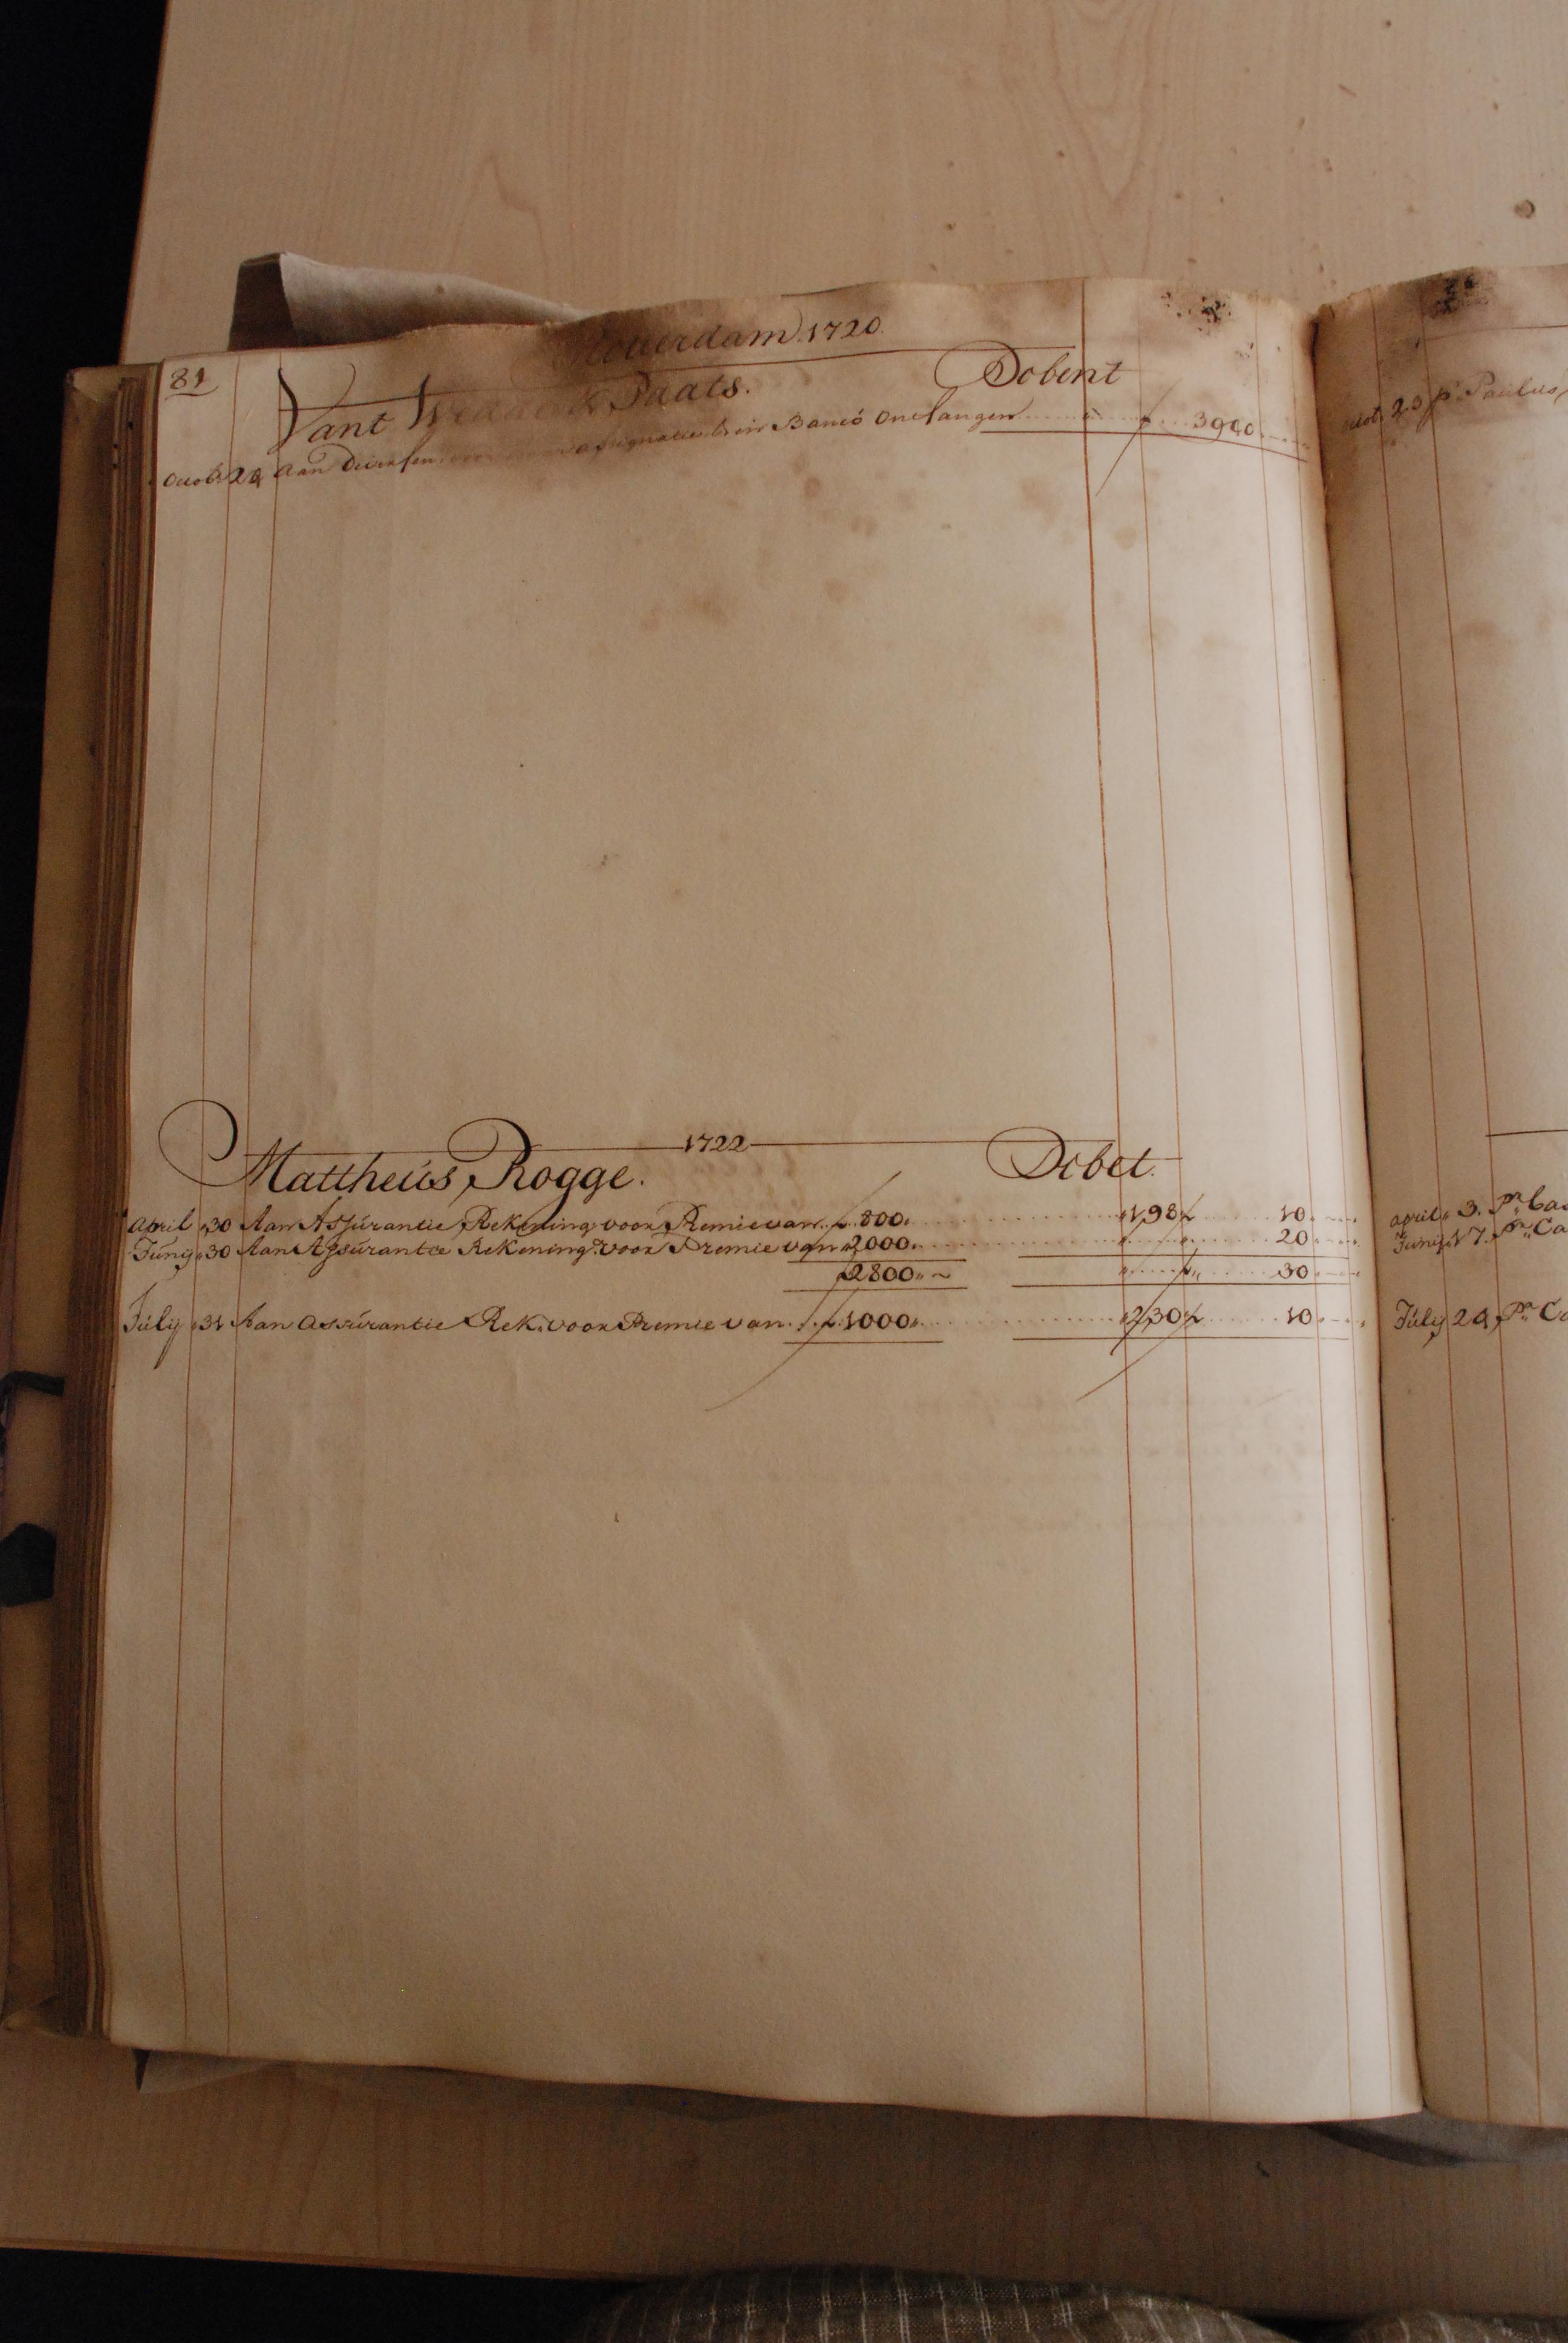 Rotterdam 1720.
81
Vant Paats. Debent
Octob 24 Aan Diversen assignatie in Banco Ontfangen ƒ 3940
1722
Mattheüs Rogge. Debet.
April 30 Aan Assürantie Rekening voor Premie van ƒ 800 198 ƒ 10
Junij 30 Aan Assürantie Rekening voor Premie van 2000 20
ƒ 2800 ƒ 30
Júlij 31 Aan Assúrantie Rek. voor Premie van ƒ 1000 230 ƒ 10
Octob 23 pr Paulus
april 3. pr Cas
Junij 17. pr Ca
Júlij 24 pr Ca